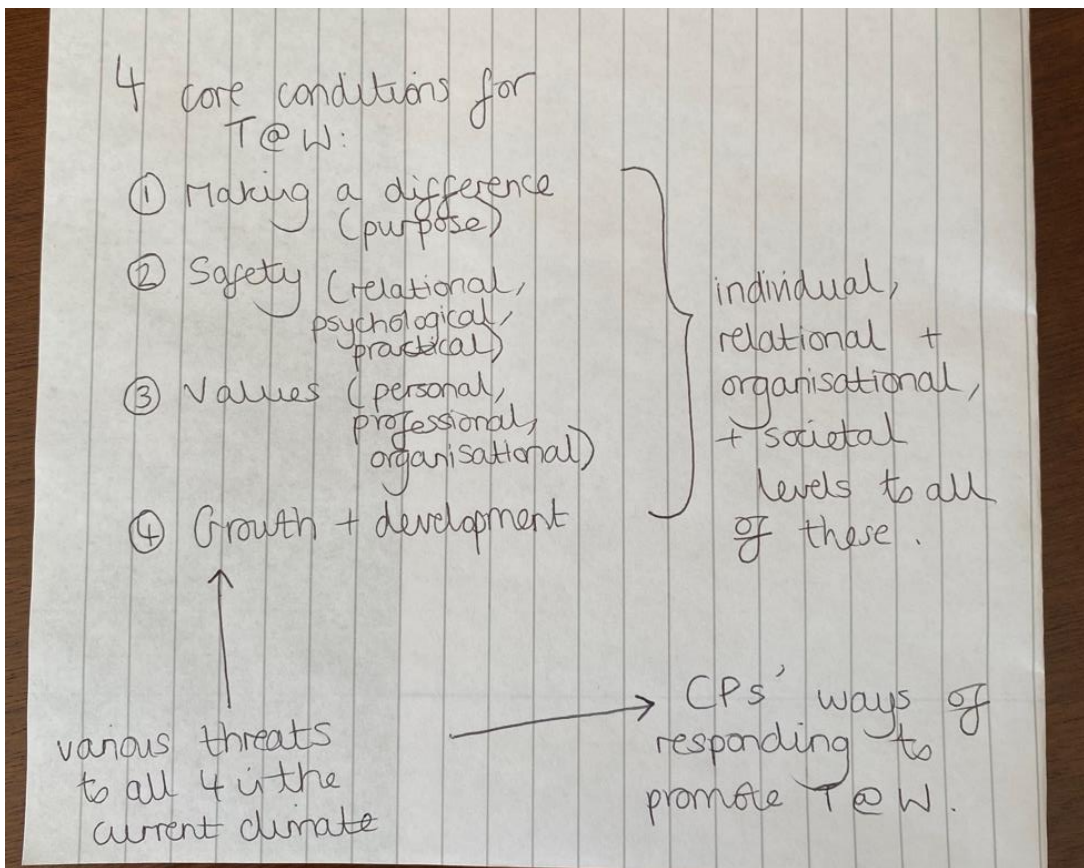 4 core conditions for
T@W:
① Making a difference
(purpose)
② Safety (relational,
psychological,
practical)
③ Values (personal,
professional,
organisational)
④ Growth + development
individual,
relational +
organisational,
+ societal
levels to all
of these.
various threats
to all 4 in the
current climate
CPs' ways of
responding to
promote T@W.